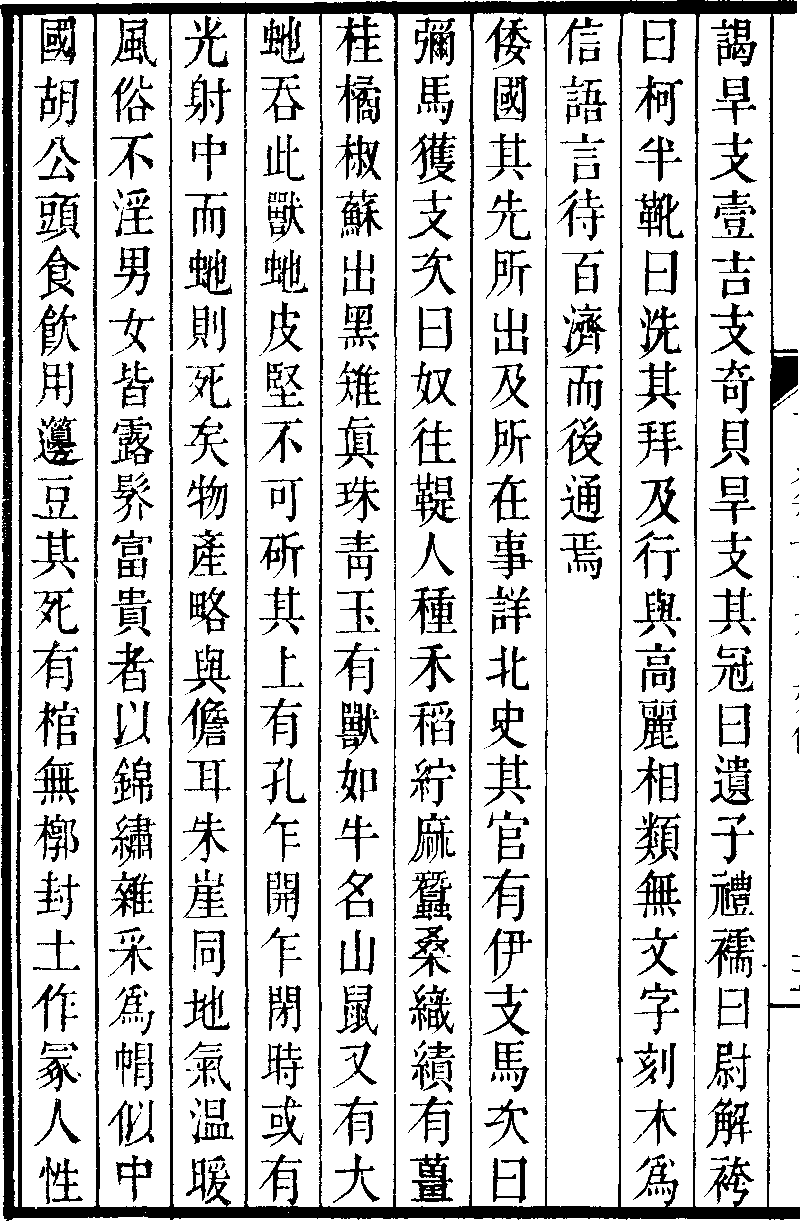 謁旱支壹吉支奇貝旱支其冠曰遺子禮襦曰尉解袴
曰柯半靴曰洗其拜及行與高麗相類無文字刻木爲
信語言待百濟而後通焉
倭國其先所出及所在事詳北史其官有伊支馬次曰
彌馬獲支次曰奴往鞮人種禾稻紵麻蠶桑織績有薑
桂橘椒蘇出黑雉眞珠靑玉有獸如牛名山鼠又有大
虵吞此獸虵皮堅不可斫其上有孔乍開乍閉時或有
光射中而虵則死矣物產略與儋耳朱崖同地氣溫暖
風俗不淫男女皆露髤富貴者以錦繡雜采爲帽似中
國胡公頭食飮用籩豆其死有棺無槨封土作冢人性